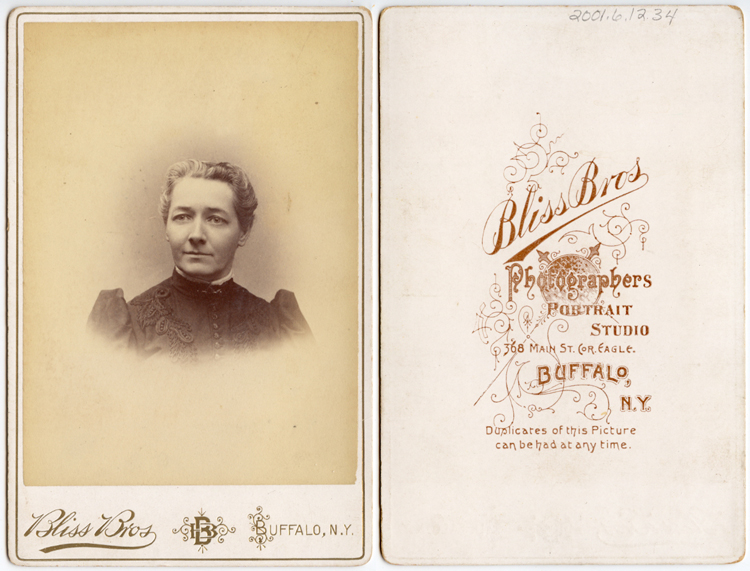 Bliss Bros
BB
BUFFALO, N.Y.
2001.6.12.34
Bliss Bros
Photographers
PORTRAIT
STUDIO
368 MAIN ST. COR. EAGLE.
BUFFALO,
N.Y.
Duplicates of this Picture
can be had at any time.